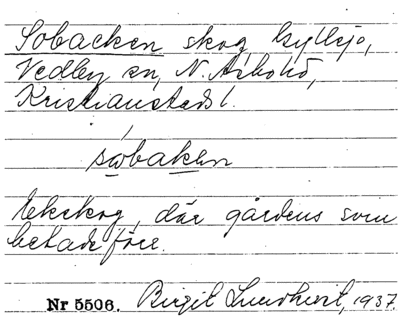 Sobacken skog, Gyllsjö,
Vedby sn, N. Åsbohd,
Kristianstads l.
swbaken
Ekskog, där gårdens svin
betade förr.
Nr 5506. Birgit Lundkvist, 1937.